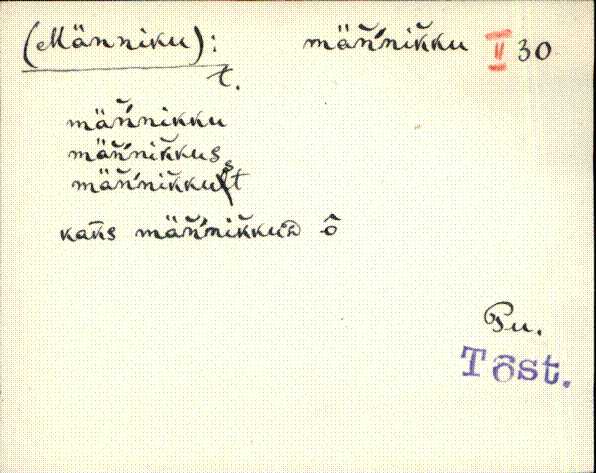 (Männiku): mäň'nikku II 30
t.
mäň'nikku
mäň'nikkus
mäň'nikkust
kaks mäň'nikkuD ô
Pu.
Tõst.